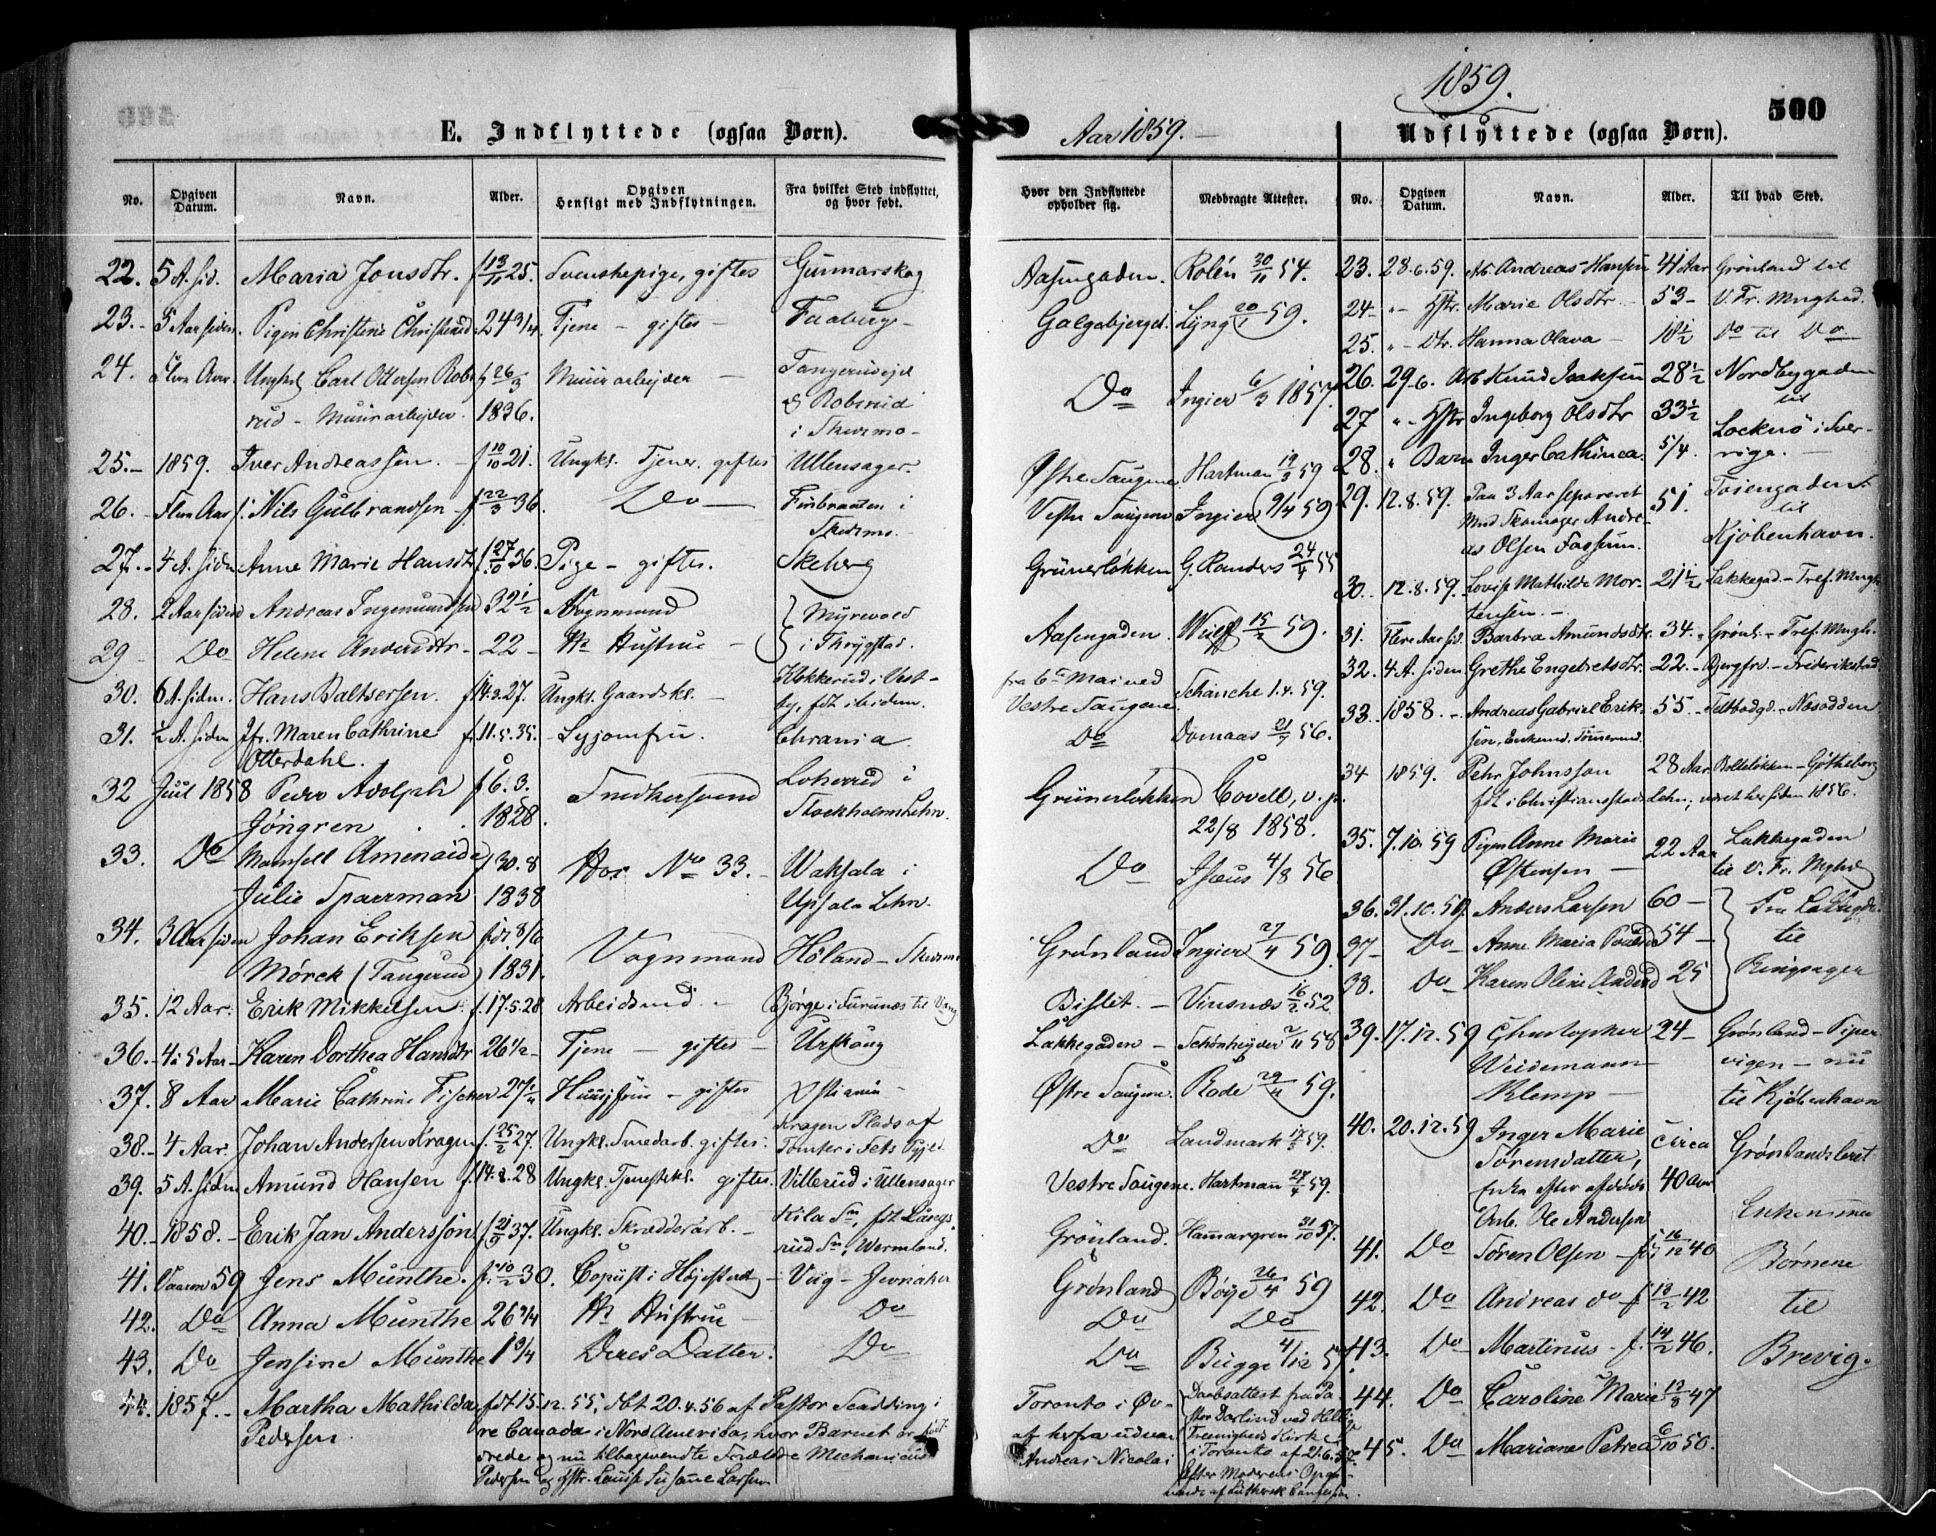 1859.
500
E. Indflyttede (ogsaa Børn).
Aar 1859.
Udflyttede (ogsaa Børn).
No. Opgiven Datum. Navn. Alder. Opgiven Hensigt med Indflytningen. Fra hvilket Sted indflyttet, og hvor født.
Hvor den Indflyttede opholder sig. Medbragte Attester. No. Opgiven Datum. Navn. Alder. Til hvad Sted.
22. 5 A. sid. Maria Jonsdtr. f 13/11 25. Svenskepige, giftes Gunnarskog
23. - 5 Aar siden Pigen Christine 24 3/4 Tjene - giftes - Faaberg -
24. Ungkl Carl Ottersen Robs- f 26/3 Muurarbejder -
rud - Muurarbejder. 1836. & Robsrud
i Skedsmo -
25. - 1859. Iver Andreassen. - f 10/10 21. Ungkl. Tjener. giftes Ullensager.
26. Flere Aar s. Nils Gulbrandsen - f 22/3 36. Do - i
Skedsmo.
27. - 4 A. siden Anne Marie Hansdtr f 27/10 36. Pige - giftes. Skeberg
28. 2 Aar siden Andreas Ingemundsen 32 1/2 Vognmand Myrevold
29 - Do Helene Andersdtr - 22 - Hs Hustrue - i Thrygstad.
30. 6 A. siden. Hans Baltsersen. f 14.3.27. Ungkl. Gaardskl. i Vest-
by, fdt ibidem.
31. 2 A. siden Jfr. Maren Cathrine f 11.5.35. - Syjomfru. Chrania.
Otterdahl.
32 Juul 1858 Pedro Adolph f 6.3. Snedkersvend i
Jöngren 1828. Stockholms Lehn.
33. Do Mamsell Amenaide f 30.8 Hos No 33. - Waksala i
Julie Sparrman 1838 Upsala Lehn.
34. 3 Aar siden Johan Eriksen fdt 8/6 Vognmand Höland - Skedsmo
Mörck (Tangerud) 1831.
35. 12 Aar. Erik Mikkelsen f. 17.5.28 Arbeidsmd. - Bjørge i Furunæs til Vang
36. - 4 à 5 Aar - Karen Dorthea Hansdtr 26 1/2 - Tjene - giftes - Urskoug
37. 8 Aar Marie Cathrine Fischer 27 1/4 Huusjfru - giftes Xstiania
38. - 4 Aar. Johan Andersen Kragen f. 25/2 27. Ungkl. Smedarb. giftes. Kragen Plads af
Tomter i Fets
39. 5 A. siden Amund Hansen f. 14.8.28 Ungkl. Tjenestekl. giftes. Villerud i Ullensager
40. - 1858. - Erik Jan Andersson f 21/9 37. Ungkl. Skrædderarb. - Kila Sn, fdt
rud Sn, Wermland.
41. Vaaren 59 Jens Munthe. f. 10/2 30. Copiist i Højesteret - Viig - Jevnaker
42. Do Anna Munthe 26 3/4 Hs Hustrue - Do
43. Do Jensine Munthe 1 3/4 Deres Datter. Do
44. 1857. - Martha Mathilda fdt 15.12.55, dbt 20.4.56 af Pastor i
Pedersen re Canada i Nord America, hvor Barnet er
og nu tilbagevendte Forældre Mechanicus
Pedersen og Hstr. Louise Susanne Larsen
Aasengaden. Rolén 30/11 54.
Galgebjerget. Lyng 20/1 59.
Do Ingier 6/3 1857.
Østre Saugene Hartman 19/3 59
Vestre Saugene Ingier 9/4 59
Grünerløkken G. Randers 24/4 55
Aasengaden. 15/2 59.
fra 6te Mai ved
Vestre Saugene. Schanche 1.4.59.
Do Domaas 21/7 56.
Grünerløkken Covell, v. p.
22/8 1858.
Do 4/8 56
Grønland Ingier 27/4 59
Bislet. - Vinsnæs 16/2 52
Lakkegaden - Schønheyder 2/11 58
Østre Saugene Rode 29/4 59.
Do Landmark 59.
Vestre Saugene. Hartman 27/4 59.
Grönland. Hammargren 31/10 57.
Grønland Bøye 26/4 59
Do Do
Do Bugge 4/12 57
Toronto i Øv- Daabsattest fra Pa-
af herfra udvan stor ved Hellig
Andreas Nicolai Treenigheds Kirke
i Toronto af 21.6.
Efter Moderens Opgi-
vende af Luthersk Confession.
23. 28.6.59. Arb Andreas Hansen 41 Aar Grønland til
24 - " - Hstr. Marie Olsdtr - 53 - V. Fr.
25. " - Dtr. Hanna Olava - 18 1/2 Do til Do
26. 29.6. Arb Knud Isaksen 28 1/2 Nordbygaden
til
27 " - Hstr Ingeborg Olsdtr 33 1/2 Locknö i Sver-
28. " Barn Inger Cathinca. 5/4. rige. -
29. 12.8.59. Paa 3 Aar separeret 51. Tøiengaden
Mnd Skomager Andre- til
as Olsen Fossum. Kjøbenhavn.
30. 12.8.59. Lovise Mathilde Mor- 21 1/2 Lakkegad. - Tref. Mngh.
tensen. -
31. Flere Aar sid. Barbra Amundsdtr. 34. Grønl. - Tref. Mngh.
32. 4 A. siden Grethe Engebretsdtr. 22. - Bergfrv. - Frederikstad
33. 1858. - Andreas Gabriel Erik- 55. - Feltbodgd. - Næsodden
sen, Enkemd, Tømmermd.
34 1859. Pehr Johnsson 28 Aar Bolteløkken - Götheborg
fdt i Christiansstads Lehn; været her siden 1856.
35. 7.10.59 Pigen Anne Marie 22 Aar Lakkegaden
Østensen - til V. Fr.
36. 31.10.59. Anders Larsen 60 - Fra Lakkegd.
37 - Do Anne Maria 54 - til
38. Do Karen Oline 25 Ringsager
39. 17.12.59 Christopher 24 - Grønland - Piper
Weidemann vigen - nu
Klemp - til Kjøbenhavn
40. 20.12.59 Inger Marie circa Grønlandsleret
Sørensdatter,
Enke efter afdøde 40 Aar
Arb. Ole Andersen Enken med
41. Do Søren Olsen - f. 16/12 40 Børnene
42. Do Andreas do f 13/2 42 til
43. Do Martinus - f. 14/2 46. Brevig.
44. Do Caroline Marie 13/8 47
45. Do Mariane Petrea 6/10 50.